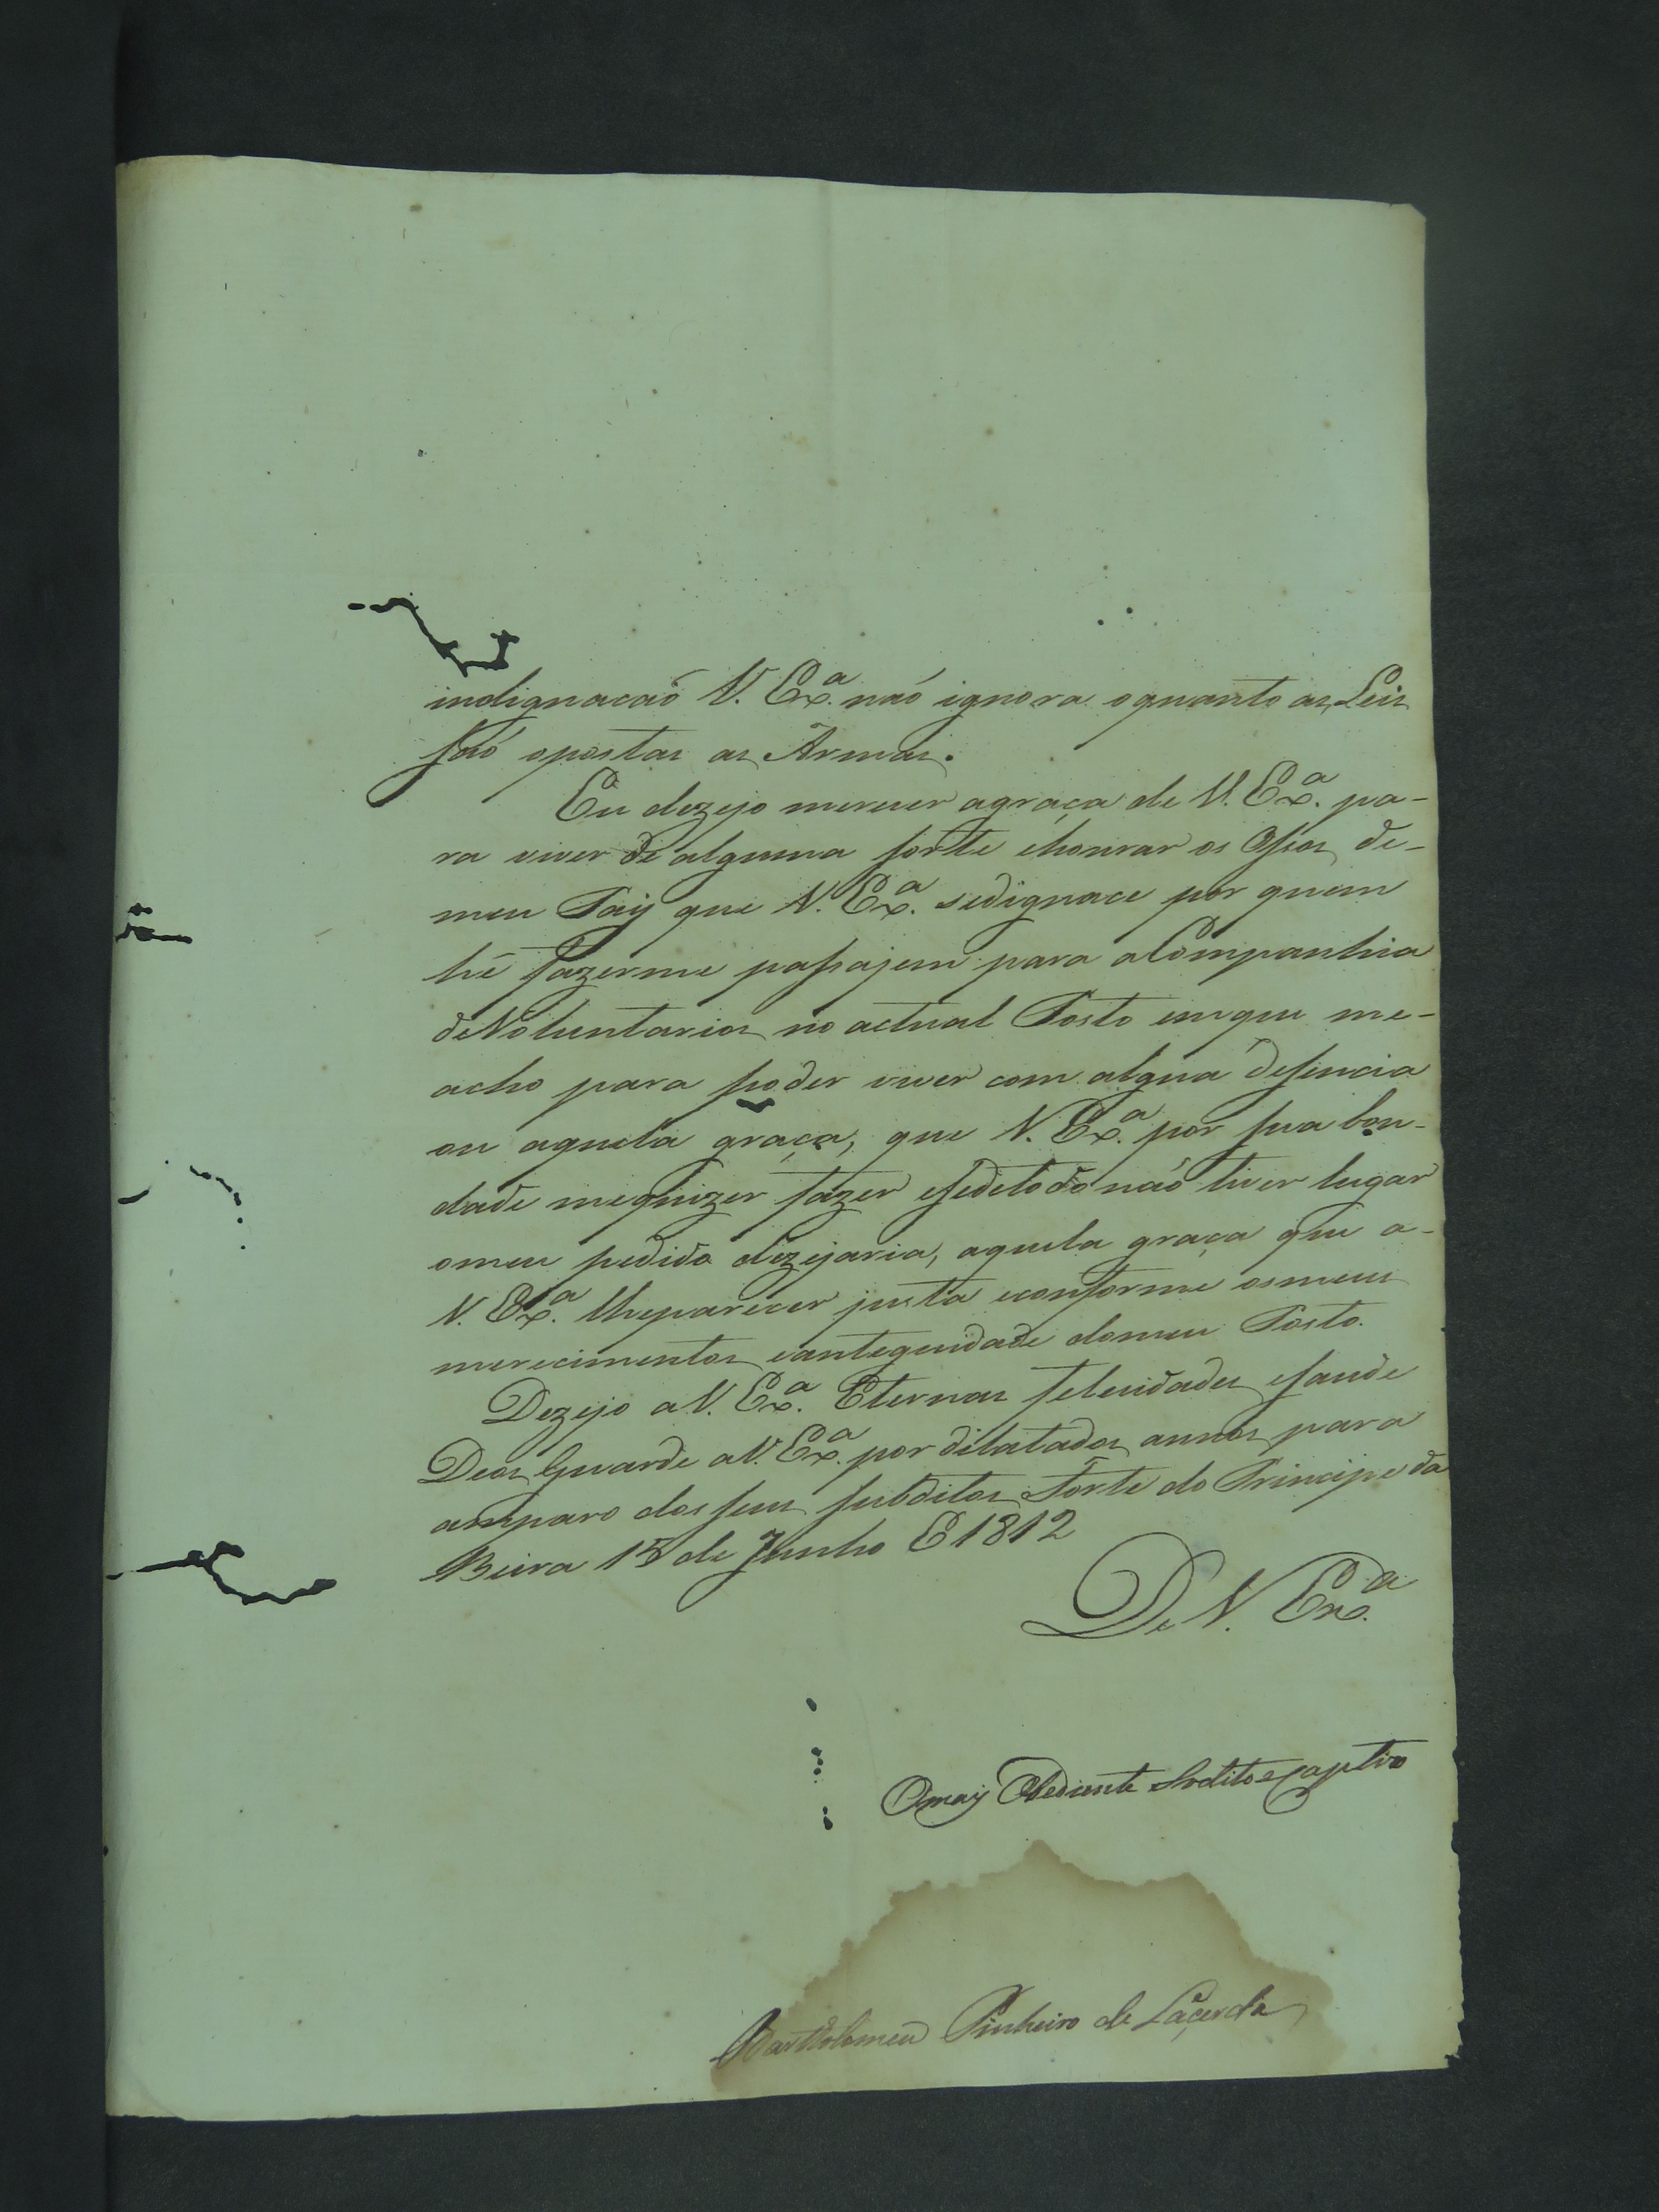 indignacaõ V. Ex.ª naõ ignora oquanto as Leis
saõ opostas as Armas.
Eu dezejo merecer agraça de V. Ex.ª pa-
ra viver de alguma sorte ehonrar os Osos de-
meu Pay que V. Ex.ª sedignace por quem
hé fazerme passajem para aCompanhia
deVoluntarios no actual Posto emque me-
acho para poder viver com algua desencia
ou aquela graça, que V. Ex.ª por sua bon-
dade mequizer fazer esedetodo naõ tiver lugar
omeu pedido dezejaria, aquela graça que a-
V. Ex.ª lheparecer justa econforme osmeus
merecimentos eanteguidade domeu Posto.
Dezejo aV. Ex.ª Eternas felecidades esaude
Deos Guarde aV. Ex.ª por dilatados annos para
amparo dos seus subditos Forte do Principe da
Beira 15 de Junho E 1812
De V. Ex.ª
Omay Obediente Subdito e captivo
Bartholomeu Pinheiro de Lacerda